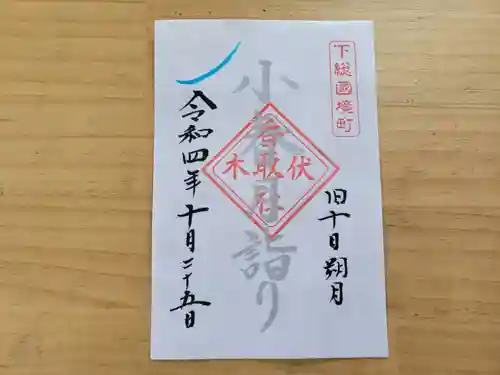 下総國境町
旧十月朔月
小春日詣り
香取社
伏木
令和四年十月二十五日